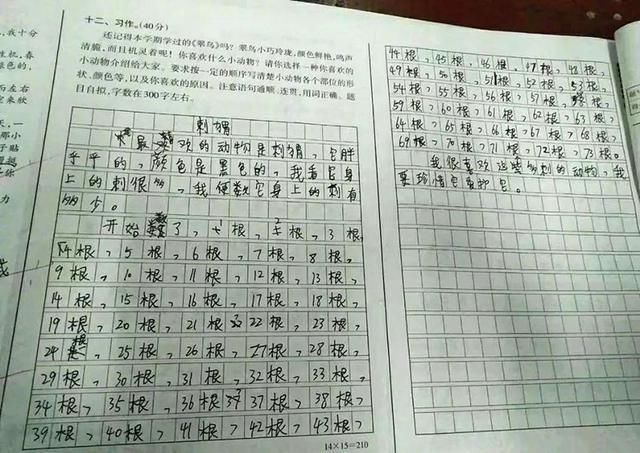 十二、习作。(40分)
还记得本学期学过的《翠鸟》吗?翠鸟小巧玲珑,颜色鲜艳,鸣声
清脆,而且机灵着呢!你喜欢什么小动物?请你选择一种你喜欢的
小动物介绍给大家。要求按一定的顺序写清楚小动物各个部位的形
状、颜色等,以及你喜欢的原因。注意语句通顺、连贯,用词正确。题
目自拟,字数在300字左右。
刺猬
最喜欢的动物是刺猬,它胖
乎乎的,颜色是黑色的,我看它身
上的刺很多,我便数它身上的刺有
多少。
开始数了,1根,2根,3根,
4根,5根,6根,7根,8根,
9根,10根,11根,12根,13根,
14根,15根,16根,17根,18根,
19根,20根,21根,22根,23根,
24根,25根,26根,27根,28根,
29根,30根,31根,32根,33根,
34根,35根,36根,37根,38根,
39根,40根,41根,42根,43根,
14×15=210
44根,45根,46根,47根,48根,
49根,50根,51根,52根,53根,
54根,55根,56根,57根,58根,
59根,60根,61根,62根,63根,
64根,65根,66根,67根,68根,
69根,70根,71根,72根,73根。
我很喜欢这些多刺的动物,我
要珍惜它爱护它。
我十分
生机,春
绿色的,
而左右
定来欣
天,一
那小
子贴